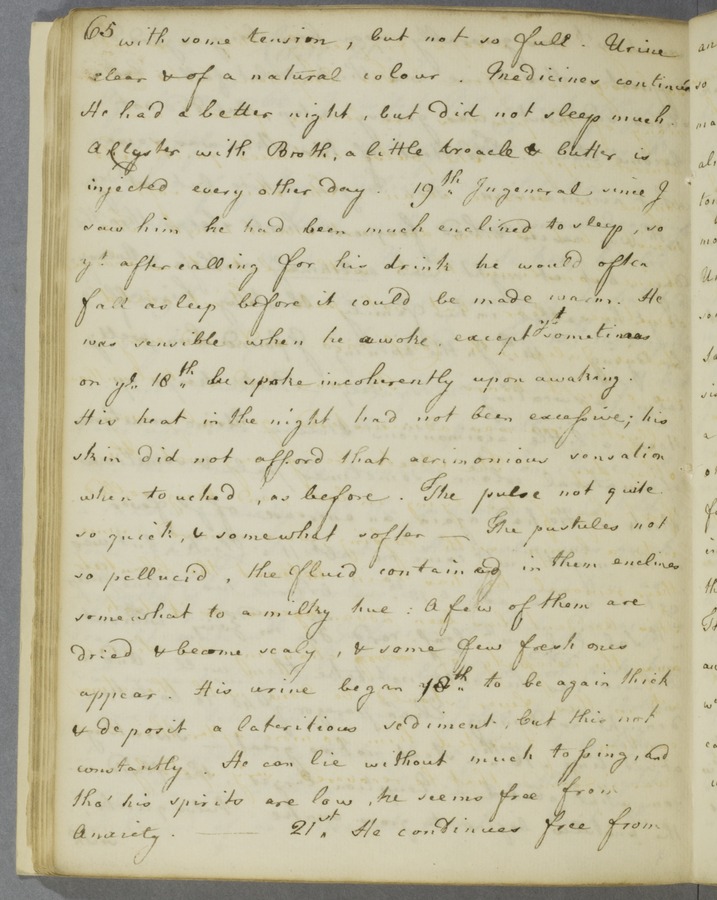 65 with some tension, but not so full. Urine
clear & of a natural colour. Medicines continued
He had a better night, but did not sleep much.
A Clyster with Broth, a little treacle & butter is
injected every other day. 19th In general since I
saw him he had been much enclined to sleep, so
yt. after calling for his drink he would often
fall asleep before it could be made warm. He
was sensible when he awoke, except yt sometimes
on ye. 18th he spoke incoherently upon awaking.
His heat in the night had not been excessive; his
skin did not afford that acrimonious sensation
when touched, as before. The pulse not quite
so quick, & somewhat softer — The pustules not
so pellucid, the fluid contained in them enclines
somewhat to a milky hue: A few of them are
dried & become scaly, & some few fresh ones
appear. His urine began 18th to be again thick
& deposit a lateritious sediment, but this not
constantly. He can lie without much tossing, and
tho' his spirits are low, he seems free from
Anxiety. — 21st. He continues free from